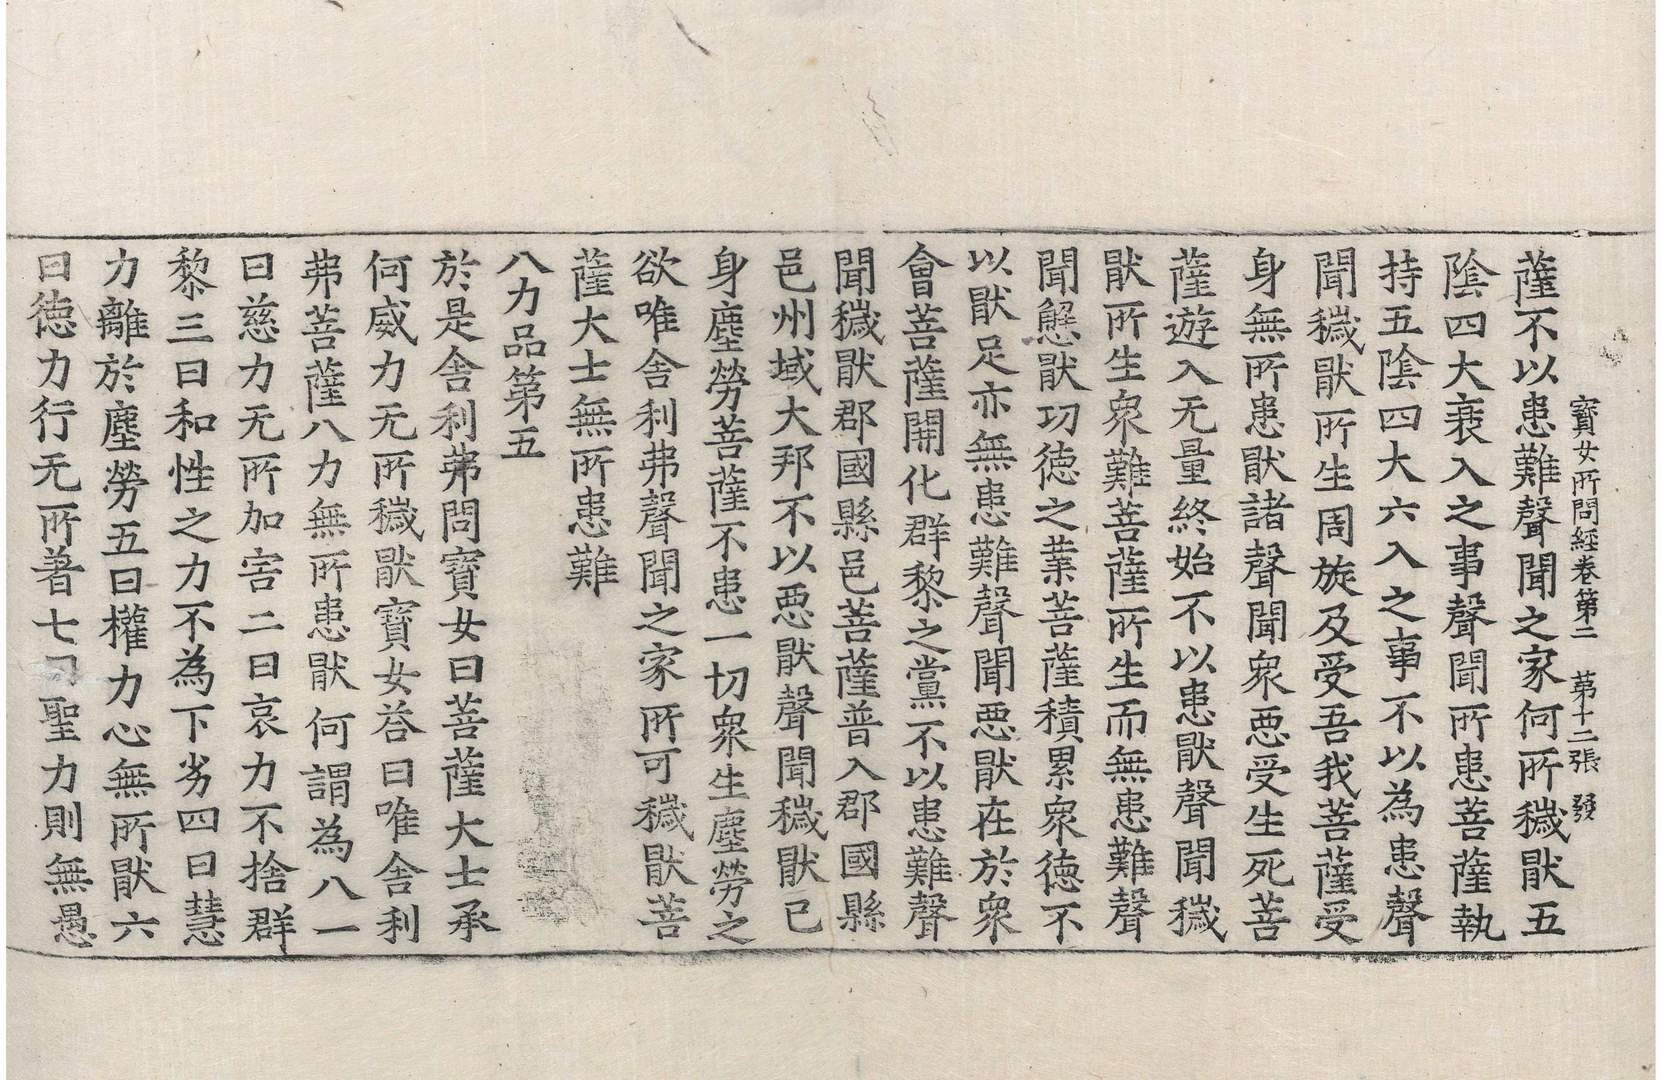 寶女所問經卷第二 第十二張 發
薩不以患難聲聞之家何所穢猒五
陰四大衰入之事聲聞所患菩薩執
持五陰四大六入之事不以為患聲
聞穢猒所生周旋及受吾我菩薩受
身無所患猒諸聲聞衆惡受生死菩
薩遊入无量終始不以患猒聲聞穢
猒所生衆難菩薩所生而無患難聲
聞懈猒功德之業菩薩積累衆德不
以猒足亦無患難聲聞惡猒在於衆
會菩薩開化群黎之黨不以患難聲
聞穢猒郡國縣邑菩薩普入郡國縣
邑州域大邦不以惡猒聲聞穢猒已
身塵勞菩薩不患一切衆生塵勞之
欲唯舍利弗聲聞之家所可穢猒菩
薩大士無所患難
八力品第五
於是舍利弗問寶女曰菩薩大士承
何威力无所穢猒寶女荅曰唯舍利
弗菩薩八力無所患猒何謂為八一
曰慈力无所加害二曰哀力不捨群
黎三曰和性之力不為下劣四曰慧
力離於塵勞五曰權力心無所猒六
曰德力行无所著七曰聖力則無愚